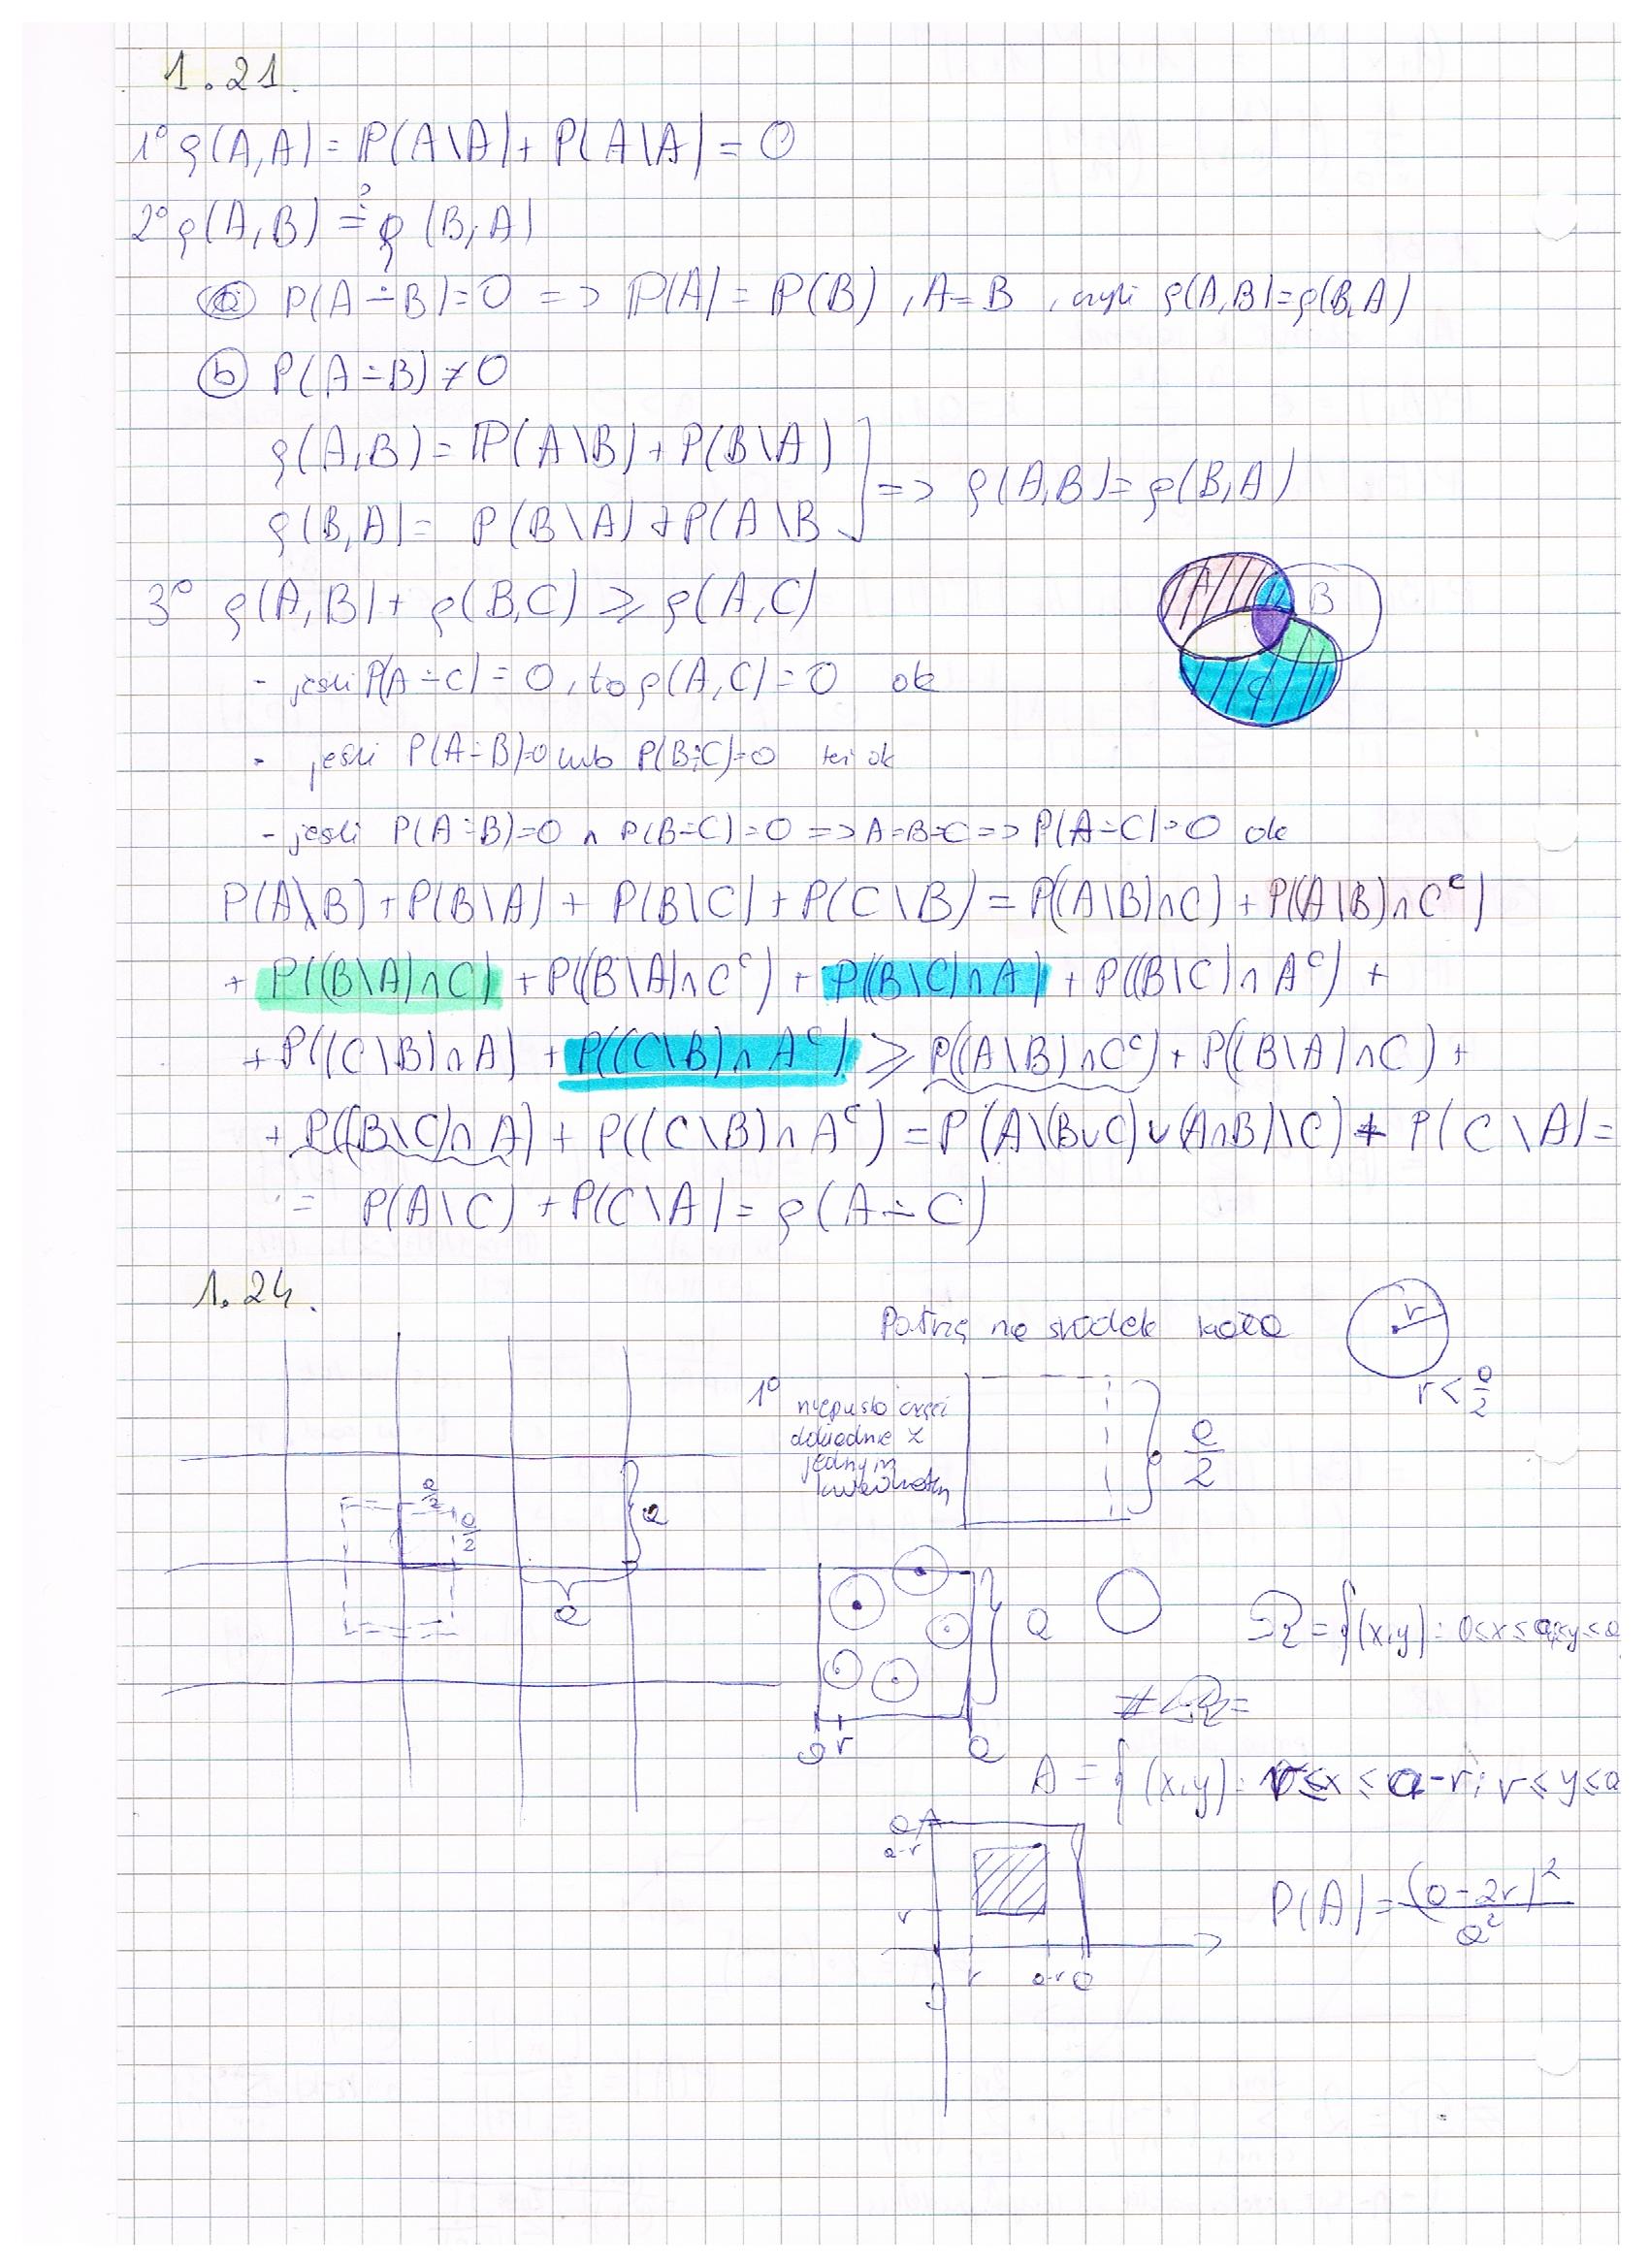 1.21.
1° ρ(A,A) = P(A\A) + P(A\A) = 0
2° ρ(A,B) ≟ ρ(B,A)
ⓐ P(A ∸ B) = 0 => P(A) = P(B), A = B, czyli ρ(A,B) = ρ(B,A)
ⓑ P(A ∸ B) ≠ 0
ρ(A,B) = P(A\B) + P(B\A)
ρ(B,A) = P(B\A) + P(A\B
] => ρ(A,B) = ρ(B,A)
3° ρ(A,B) + ρ(B,C) ⩾ ρ(A,C)
A B
C
- jeśli P(A ∸ C) = 0, to ρ(A,C) = 0 ok
- jeśli P(A ∸ B)=0 lub P(B ∸ C)=0 też ok
- jeśli P(A ∸ B)=0 ∧ P(B ∸ C)=0 => A=B=C => P(A ∸ C)=0 ok
P(A\B) + P(B\A) + P(B\C) + P(C\B) = P((A\B)∩C) + P((A\B)∩Cᶜ)
+ P((B\A)∩C) + P((B\A)∩Cᶜ) + P((B\C)∩A) + P((B\C)∩Aᶜ) +
+ P((C\B)∩A) + P((C\B)∩Aᶜ) ⩾ P((A\B)∩Cᶜ) + P((B\A)∩C) +
+ P((B\C)∩A) + P((C\B)∩Aᶜ) = P(A\(B∪C) ∪ (A∩B)\C) + P(C\A) =
= P(A\C) + P(C\A) = ρ(A ∸ C)
1.24.
Patrzę na środek koła
r
r < a/2
1° niepusta część
dokładnie z
jednym
kwadratem
a/2
a/2
a/2
a
a
a
0 r a
Ω = {(x,y): 0≤x≤a, 0≤y≤a
#Ω =
A = {(x,y): r≤x≤a-r; r≤y≤a
a
a-r
r
0 r a-r a
P(A) = (a-2r)²/a²